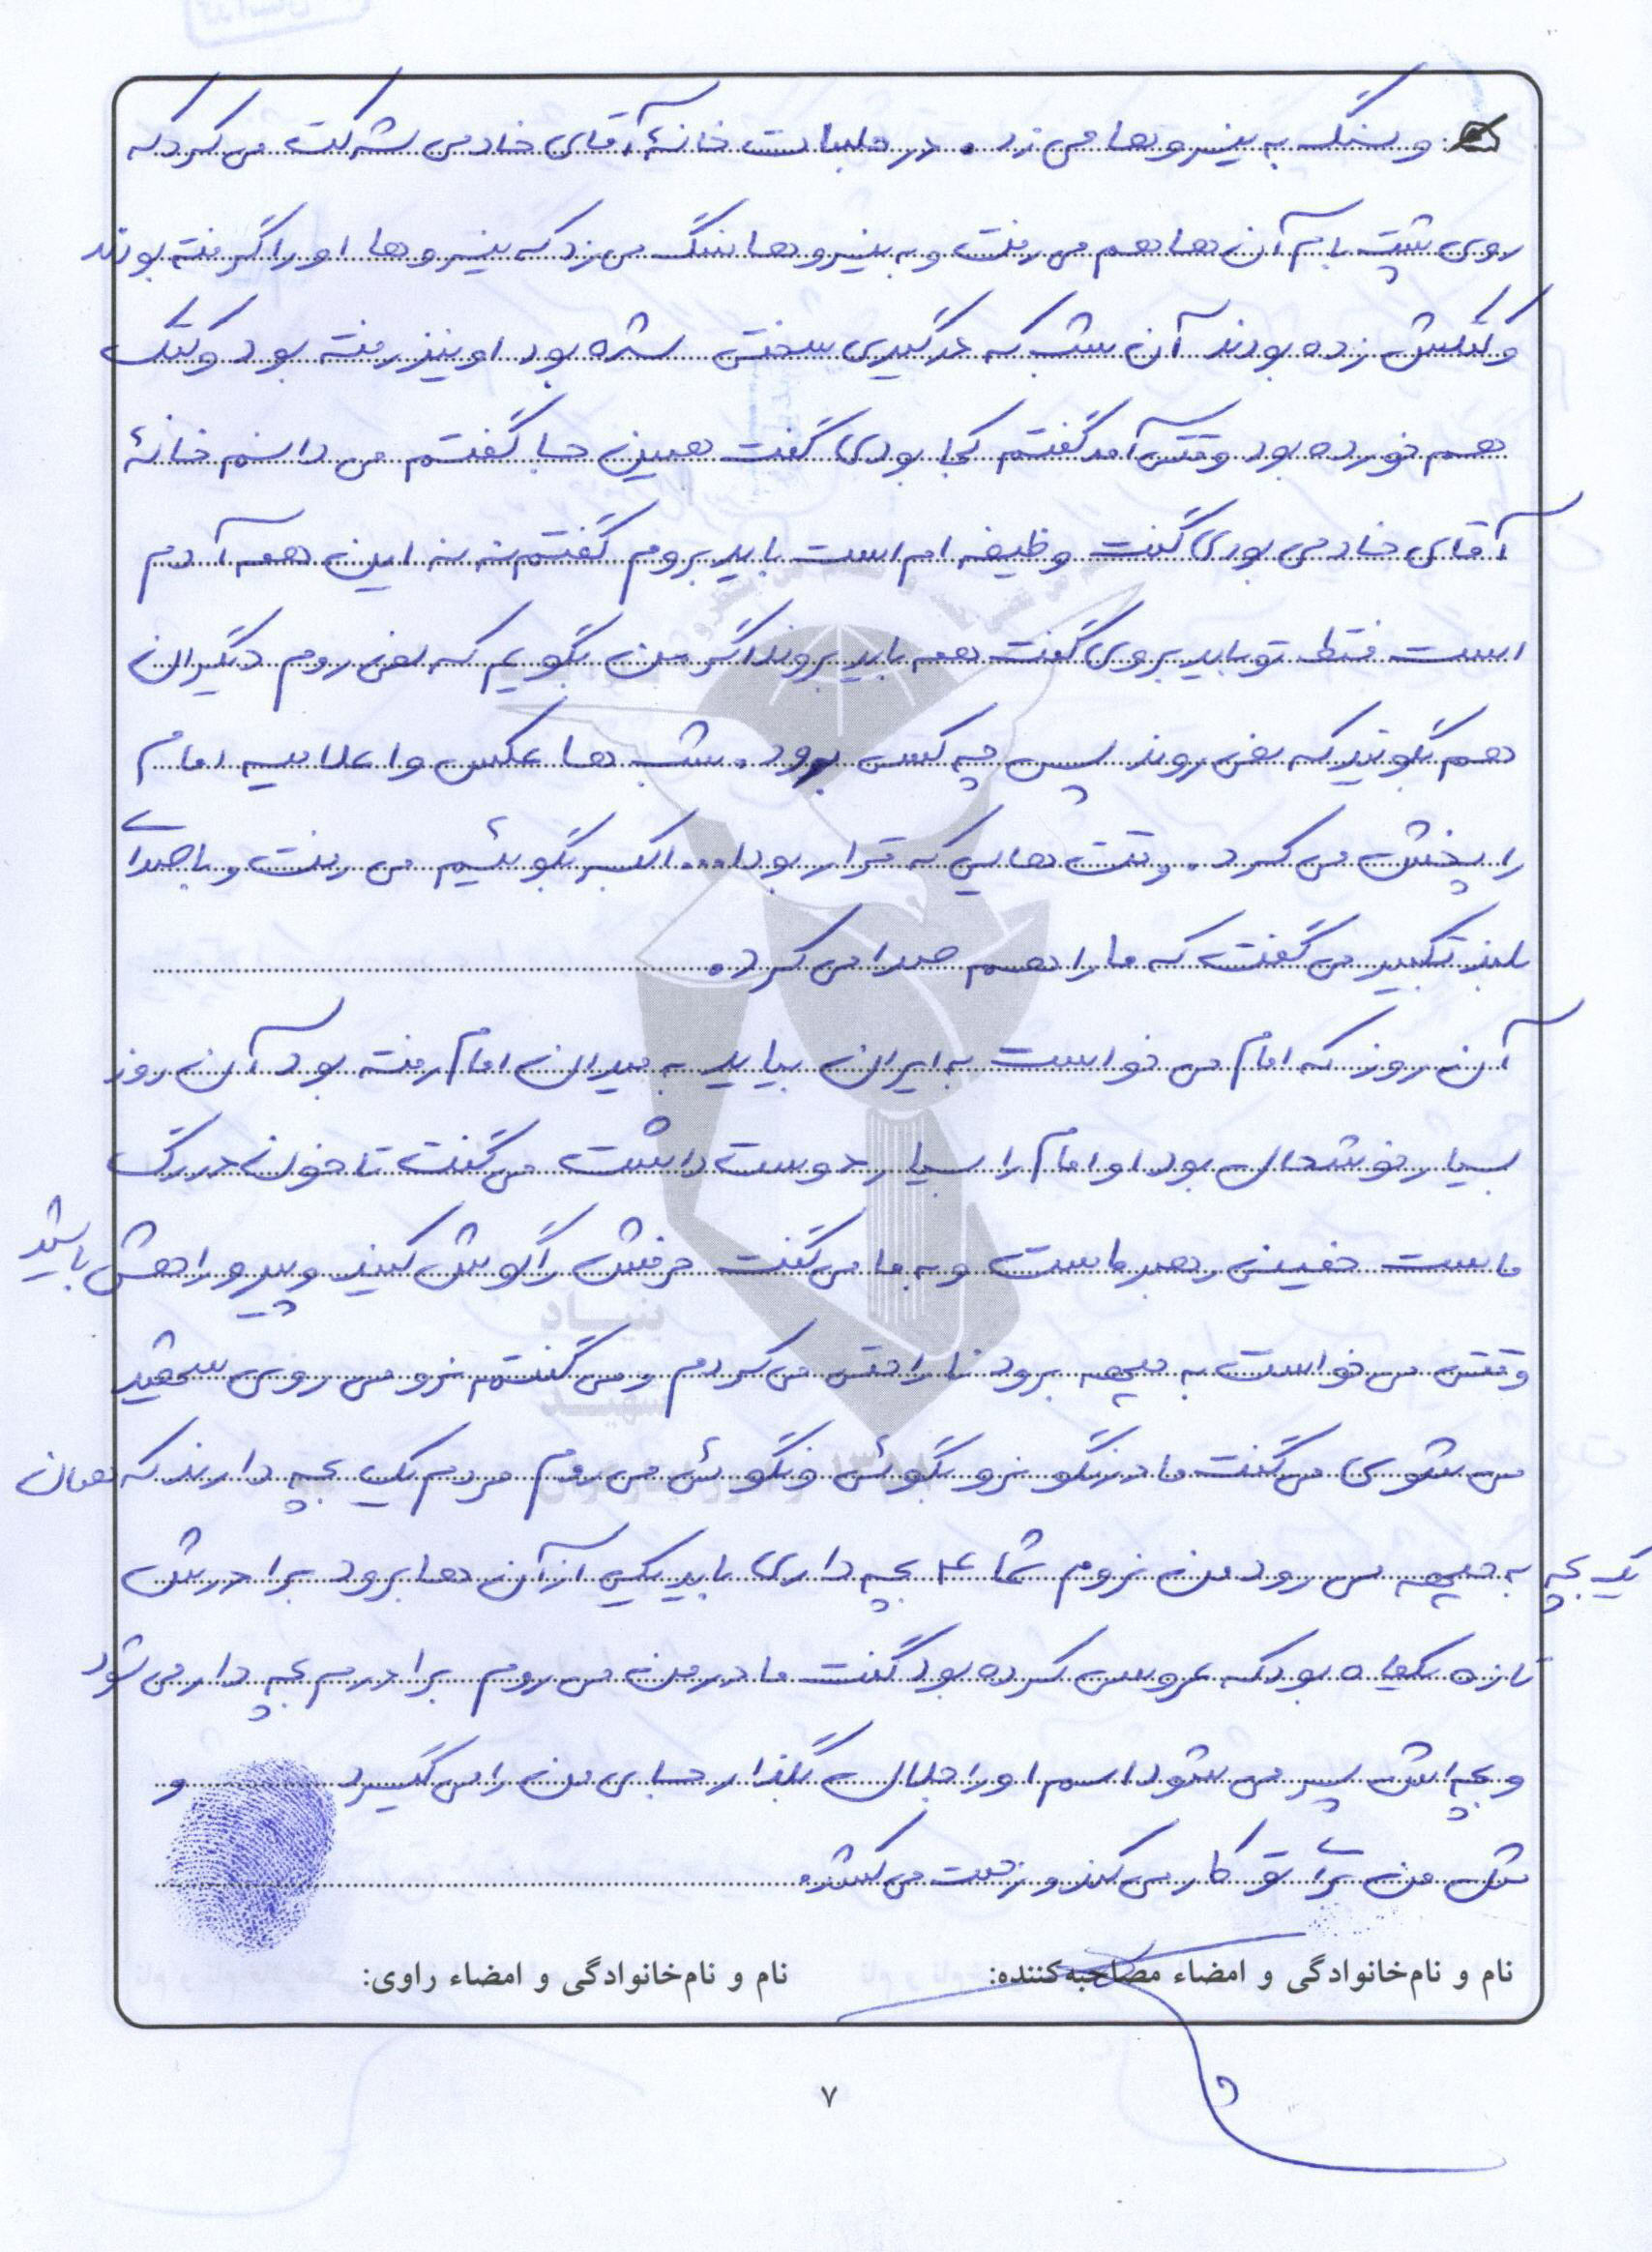 و سنگ به نیروها می زد. در جلسات خانۀ آقای خادمی شرکت می کرد که
روی پشت بام آن ها هم می رفت و به نیروها سنگ می زد که نیروها او را گرفته بودند
و کتکش زده بودند آن شب که درگیری سختی شده بود او نیز رفته بود و کتک
هم خورده بود وقتی آمد گفتم کجا بودی گفت همین جا گفتم می دانم خانۀ
آقای خادمی بودی گفت وظیفه ام است باید بروم گفتم نه نه این همه آدم
است فقط تو باید بروی گفت همه باید بروند اگر من بگویم که نمی روم دیگران
هم بگویند که نمی روند پس چه کسی برود. شب ها عکس و اعلامیه امام
را پخش می کرد. وقت هایی که قرار بود ا... اکبر بگوئیم می رفت و با صدای
بلند تکبیر می گفت که ما را هم صدا می کرد.
آن روز که امام می خواست به ایران بیاید به میدان امام رفته بود آن روز
بسیار خوشحال بود او امام را بسیار دوست داشت می گفت تا خون در رگ
ماست خمینی رهبر ماست و به ما می گفت حرفش را گوش کنید و پیرو راهش باشید
وقتی می خواست به جبهه برود ناراحتی می کردم و می گفتم نرو می روی شهید
می شوی می گفت مادر نگو نرو بگوئی و نگوئی می روم مردم یک بچه دارند که همان
یک بچه به جبهه می رود من نروم شما ۴ بچه داری باید یکی از آن ها برود برادرش
تازه یکماه بود که عروسی کرده بود گفت مادر من می روم برادرم بچه دار می شود
و بچه اش پسر می شود اسم او را جلال بگذار جای من را می گیرد و
مثل من برای تو کار می کند و زحمت می کشد.
نام و نام‌خانوادگی و امضاء مصاحبه‌کننده: نام و نام‌خانوادگی و امضاء راوی:
۷
بنیاد
شهید